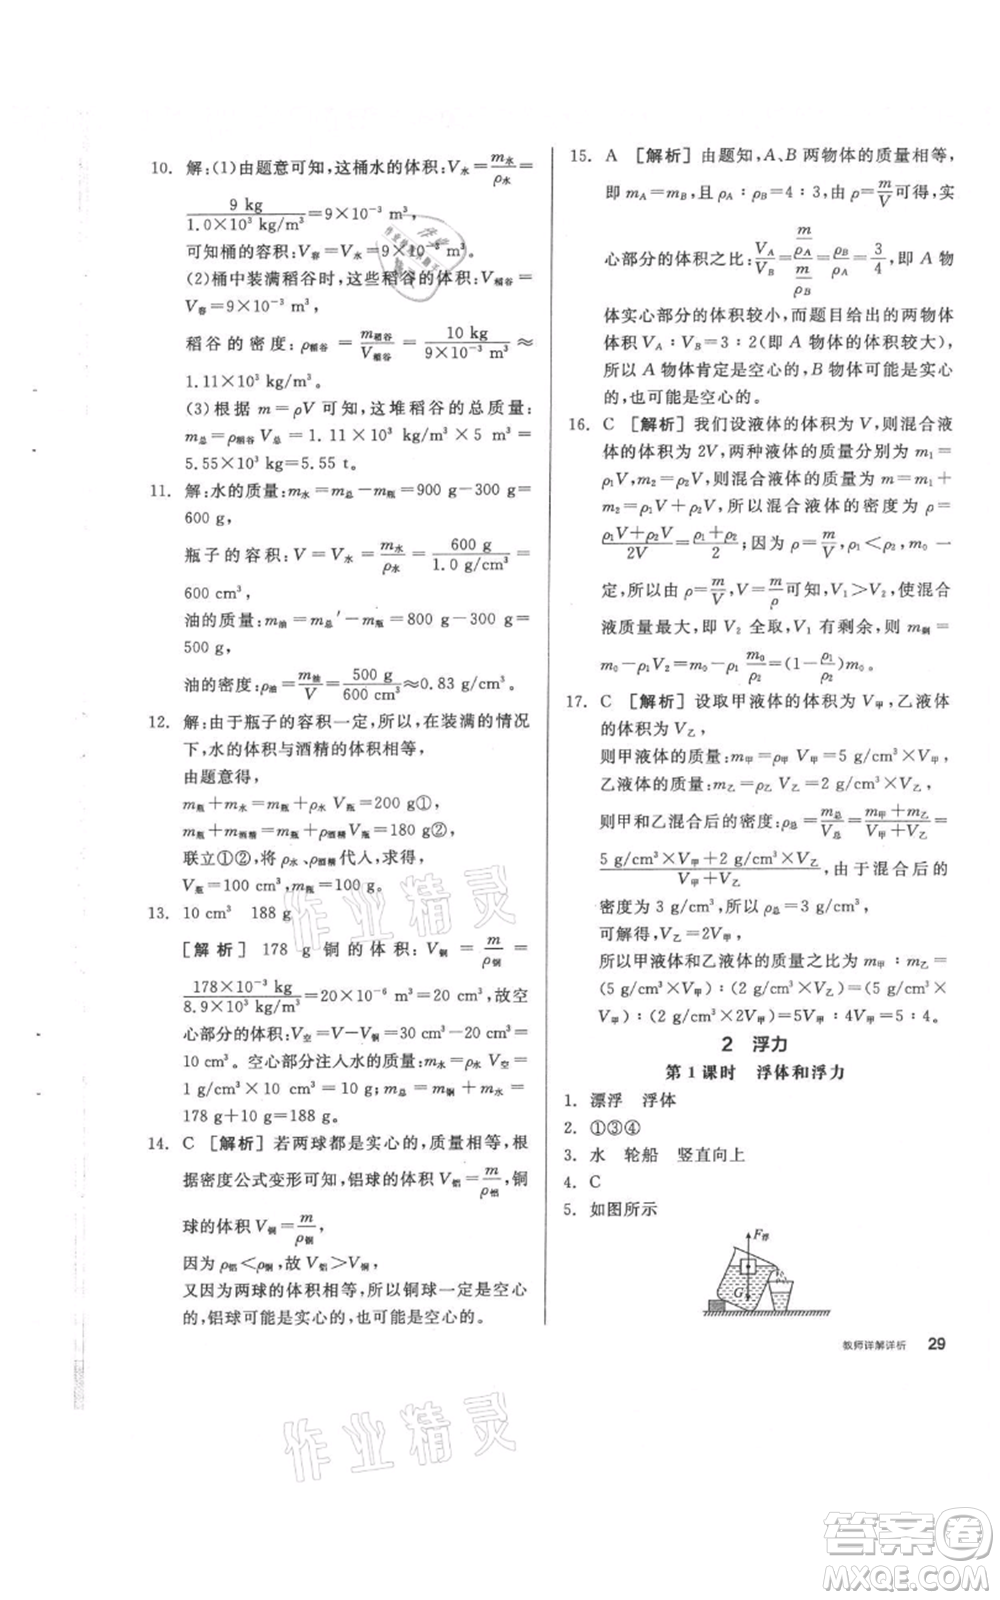 10. 解:(1)由题意可知,这桶水的体积:V水=m水/ρ水=
9 kg/1.0×10³ kg/m³=9×10⁻³ m³,
可知桶的容积:V容=V水=9×10⁻³ m³。
(2)桶中装满稻谷时,这些稻谷的体积:V稻谷=
V容=9×10⁻³ m³,
稻谷的密度:ρ稻谷=m稻谷/V稻谷=10 kg/9×10⁻³ m³≈
1.11×10³ kg/m³。
(3)根据 m=ρV 可知,这堆稻谷的总质量:
m总=ρ稻谷V总=1.11×10³ kg/m³×5 m³=
5.55×10³ kg=5.55 t。
11. 解:水的质量:m水=m总-m瓶=900 g-300 g=
600 g,
瓶子的容积:V=V水=m水/ρ水=600 g/1.0 g/cm³=
600 cm³,
油的质量:m油=m总′-m瓶=800 g-300 g=
500 g,
油的密度:ρ油=m油/V=500 g/600 cm³≈0.83 g/cm³。
12. 解:由于瓶子的容积一定,所以,在装满的情况
下,水的体积与酒精的体积相等,
由题意得,
m瓶+m水=m瓶+ρ水V瓶=200 g①,
m瓶+m酒精=m瓶+ρ酒精V瓶=180 g②,
联立①②,将 ρ水、ρ酒精代入,求得,
V瓶=100 cm³,m瓶=100 g。
13. 10 cm³ 188 g
[解析] 178 g 铜的体积:V铜=m/ρ铜=
178×10⁻³ kg/8.9×10³ kg/m³=20×10⁻⁶ m³=20 cm³,故空
心部分的体积:V空=V-V铜=30 cm³-20 cm³=
10 cm³。空心部分注入水的质量:m水=ρ水V空=
1 g/cm³×10 cm³=10 g,则总质量:m总=
178 g+10 g=188 g。
14. C [解析]若两球都是实心的,质量相等,根
据密度公式变形可知,铝球的体积 V铝=m/ρ铝,铜
球的体积 V铜=m/ρ铜,
因为 ρ铝<ρ铜,故 V铝>V铜。
又因为两球的体积相等,所以铜球一定是空心
的,铝球可能是实心的,也可能是空心的。
15. A [解析] 由题知,A、B 两物体的质量相等,
即 mA=mB,且 ρA∶ρB=4∶3,由 ρ=m/V可得,实
心部分的体积之比:VA/VB=(m/ρA)/(m/ρB)=ρB/ρA=3/4,即 A 物
体实心部分的体积较小,而题目给出的两物体
体积 VA∶VB=3∶2(即 A 物体的体积较大),
所以 A 物体肯定是空心的,B 物体可能是实心
的,也可能是空心的。
16. C [解析]我们设液体的体积为 V,则混合液
体的体积为 2V,两种液体的质量分别为 m₁=
ρ₁V、m₂=ρ₂V,则混合液体的质量为 m=m₁+
m₂=ρ₁V+ρ₂V,所以混合液体的密度为 ρ=
ρ₁V+ρ₂V/2V=ρ₁+ρ₂/2;因为 ρ=m/V,ρ₁<ρ₂,m₀ 一
定,所以由 ρ=m/V,V=m/ρ可知,V₁>V₂,使混合
液质量最大,即 V₂ 全取,V₁ 有剩余,则 m剩=
m₀-ρ₁V₂=m₀-ρ₁ m₀/ρ₂=(1-ρ₁/ρ₂)m₀。
17. C [解析]设取甲液体的体积为 V甲,乙液体
的体积为 V乙,
则甲液体的质量:m甲=ρ甲V甲=5 g/cm³×V甲,
乙液体的质量:m乙=ρ乙V乙=2 g/cm³×V乙,
则甲和乙混合后的密度:ρ总=m总/V总=m甲+m乙/V甲+V乙=
5 g/cm³×V甲+2 g/cm³×V乙/V甲+V乙,由于混合后的
密度为 3 g/cm³,所以 ρ总=3 g/cm³,
可解得,V乙=2V甲,
所以甲液体和乙液体的质量之比为 m甲∶m乙=
(5 g/cm³×V甲)∶(2 g/cm³×V乙)=(5 g/cm³×
V甲)∶(2 g/cm³×2V甲)=5V甲∶4V甲=5∶4。
2 浮力
第 1 课时 浮体和浮力
1. 漂浮 浮体
2. ①③④
3. 水 轮船 竖直向上
4. C
5. 如图所示
F浮
G
教师详解详析 29
作业精灵
作业精灵
答案圈
MXQE.COM